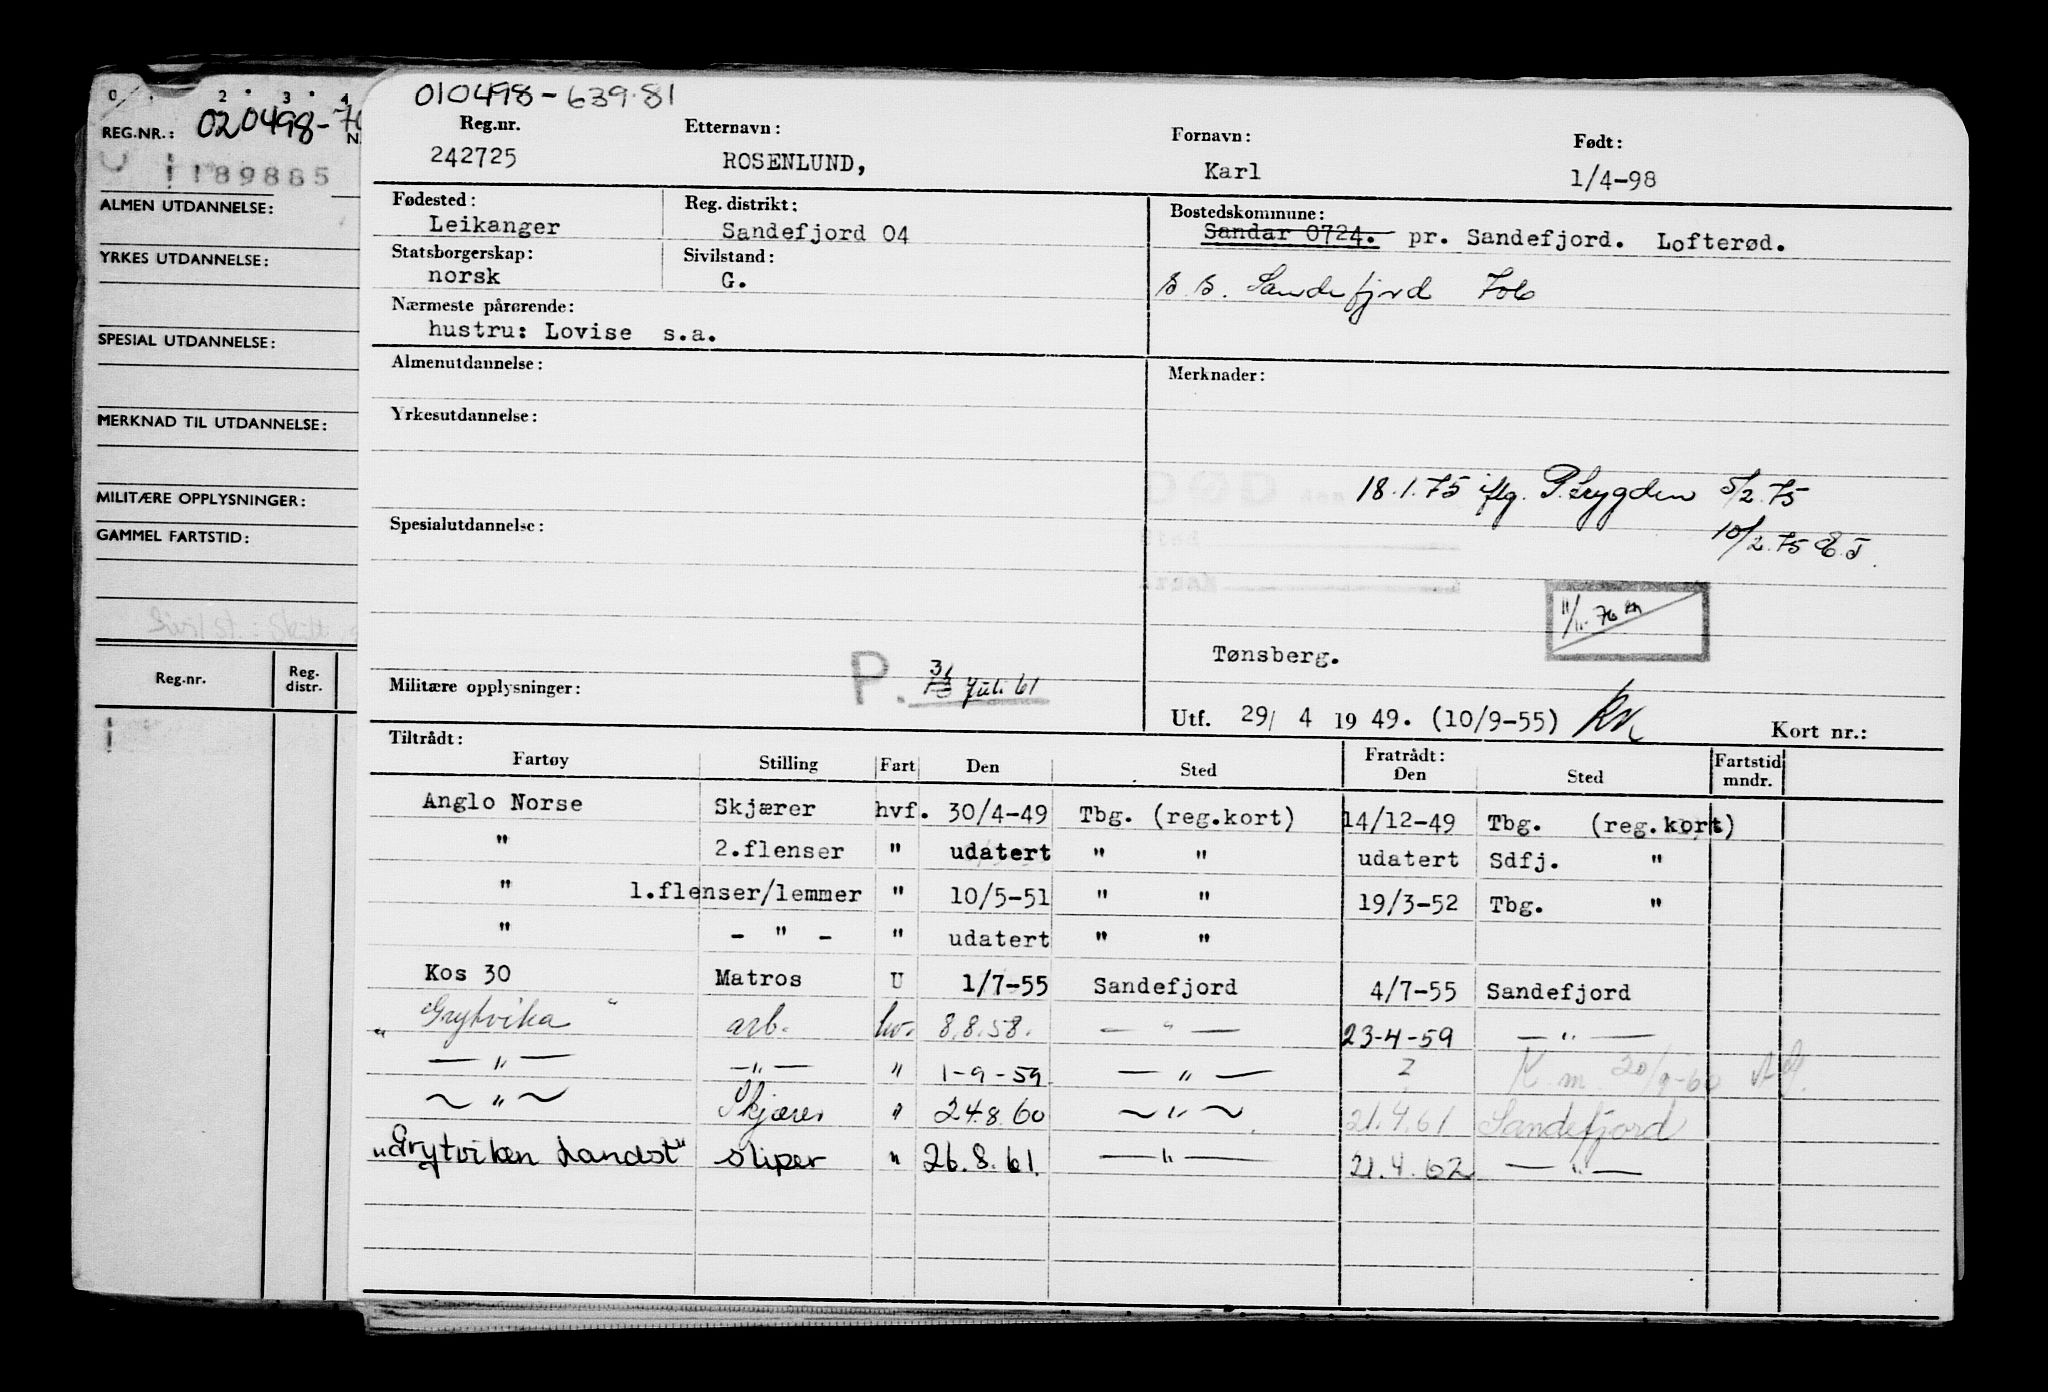 0 1 2 3 4
REG.NR.: 020498-
189885
ALMEN UTDANNELSE:
YRKES UTDANNELSE:
SPESIAL UTDANNELSE:
MERKNAD TIL UTDANNELSE:
MILITÆRE OPPLYSNINGER:
GAMMEL FARTSTID:
Reg.nr. Reg. distr.
010498-639.81
Reg.nr. Etternavn: Fornavn: Født:
242725 ROSENLUND, Karl 1/4-98
Fødested: Reg. distrikt: Bostedskommune:
Leikanger Sandefjord 04 Sandar 0724. pr. Sandefjord. Lofterød.
Statsborgerskap: Sivilstand:
norsk G. S.S. Sandefjord 706
Nærmeste pårørende:
hustru: Lovise s.a.
Almenutdannelse: Merknader:
Yrkesutdannelse:
18.1.75 iflg. P.trygden 5/2.75
Spesialutdannelse: 10/2.75 E.J.
11/11-76
Tønsberg.
Militære opplysninger: P. Juli 61
Utf. 29/ 4 19 49. (10/9-55) Kort nr.:
Tiltrådt: Fratrådt: Fartstid
Fartøy Stilling Fart Den Sted Den Sted mndr.
Anglo Norse Skjærer hvf. 30/4-49 Tbg. (reg.kort) 14/12-49 Tbg. (reg.kort)
" 2.flenser " udatert " " udatert Sdfj. "
" 1.flenser/lemmer " 10/5-51 " " 19/3-52 Tbg. "
" - " - " udatert " "
Kos 30 Matros U 1/7-55 Sandefjord 4/7-55 Sandefjord
"Grytvika" arb. hv. 8.8.58. — " — 23-4-59 — " —
— " — — " — " 1-9-59 — " — ? K.m. 20/9-60
~ " ~ Skjærer " 24.8.60 ~ " ~ 21.4.61 Sandefjord
"Grytviken Landst" sliper " 26.8.61. — " — 21.4.62 — " —